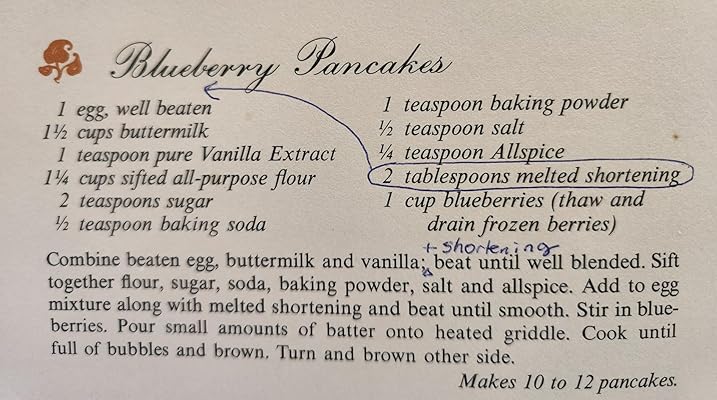 Blueberry Pancakes
1 egg, well beaten
1½ cups buttermilk
1 teaspoon pure Vanilla Extract
1¼ cups sifted all-purpose flour
2 teaspoons sugar
½ teaspoon baking soda
1 teaspoon baking powder
½ teaspoon salt
¼ teaspoon Allspice
2 tablespoons melted shortening
1 cup blueberries (thaw and
drain frozen berries)
+ shortening
Combine beaten egg, buttermilk and vanilla; beat until well blended. Sift
together flour, sugar, soda, baking powder, salt and allspice. Add to egg
mixture along with melted shortening and beat until smooth. Stir in blue-
berries. Pour small amounts of batter onto heated griddle. Cook until
full of bubbles and brown. Turn and brown other side.
Makes 10 to 12 pancakes.